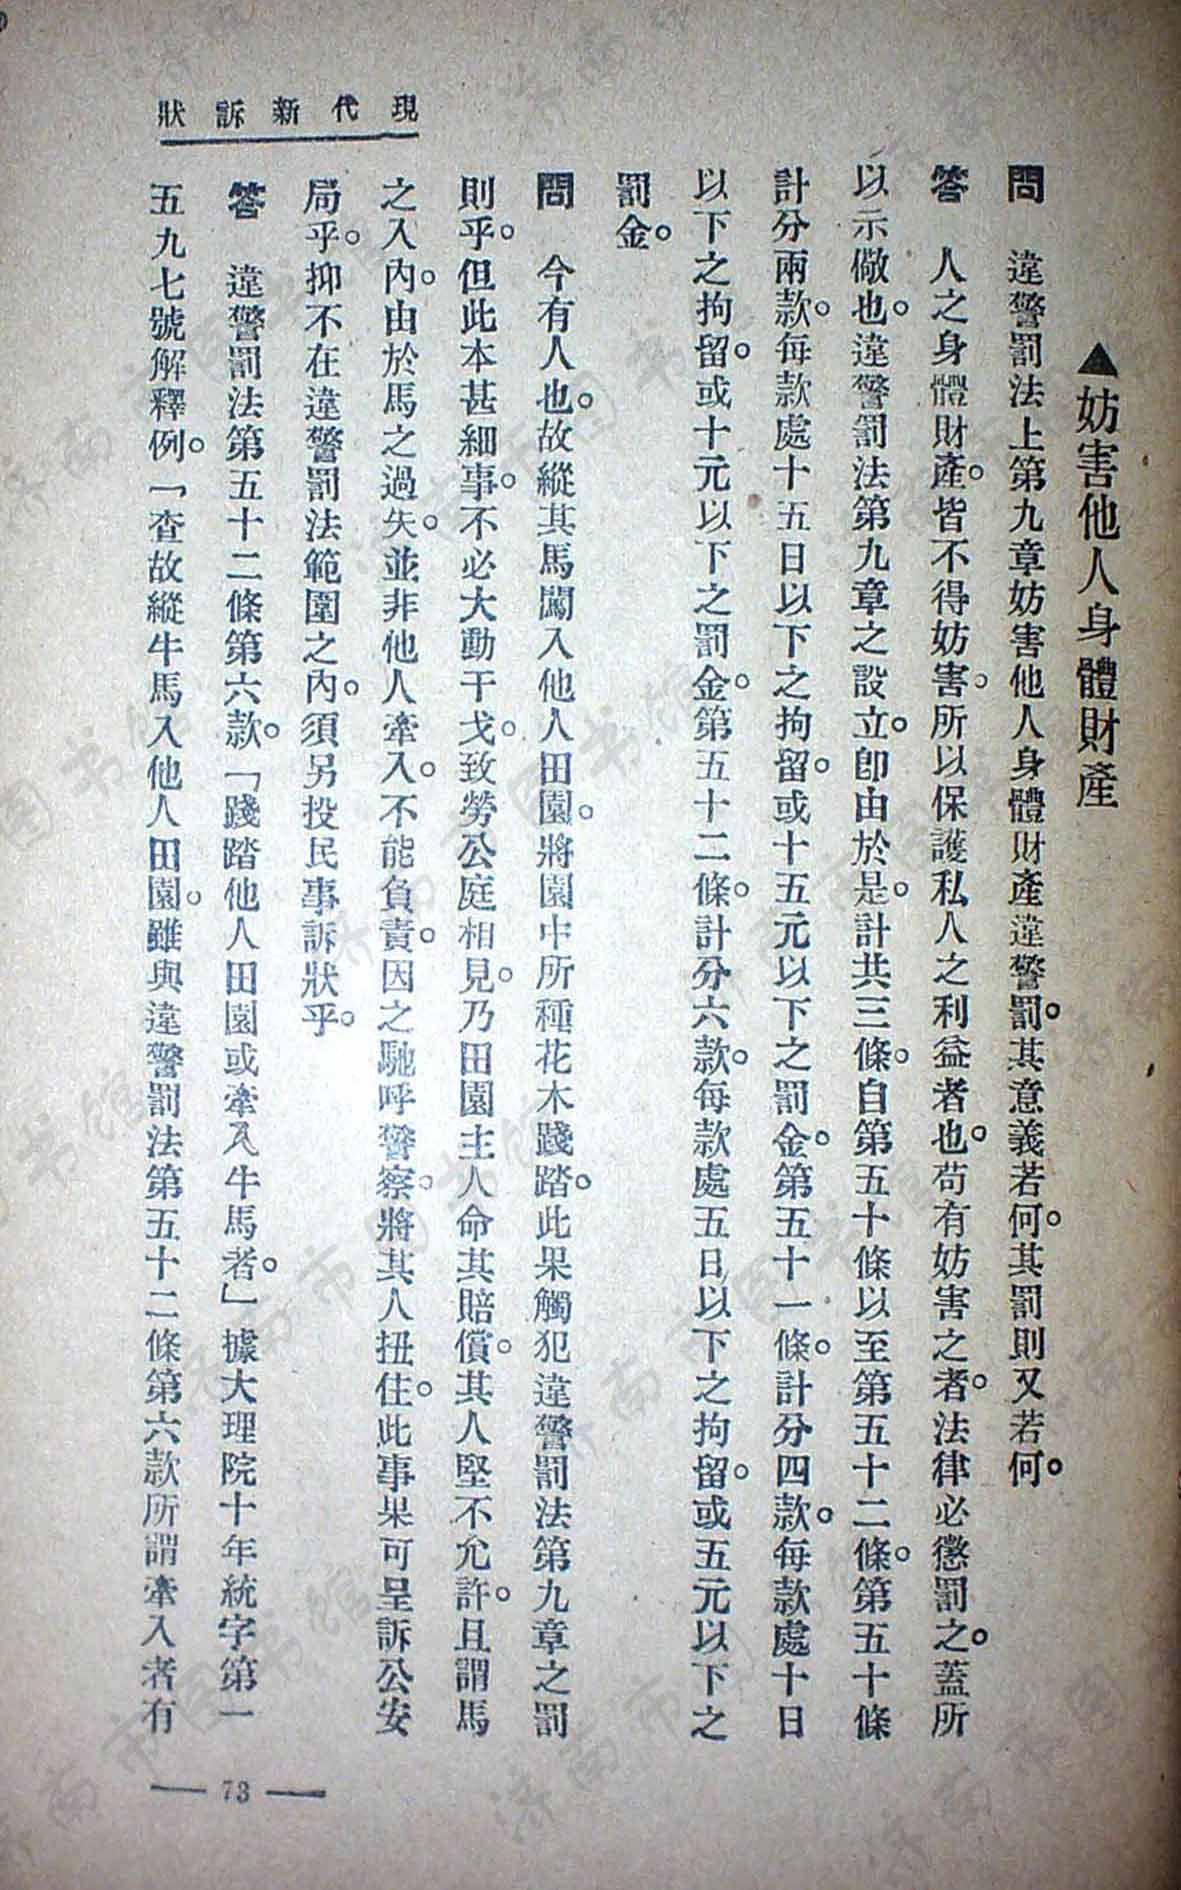 現代新訴狀
▲妨害他人身體財產
問　違警罰法上第九章妨害他人身體財產違警罰。其意義若何。其罰則又若何。
答　人之身體財產。皆不得妨害。所以保護私人之利益者也。苟有妨害之者。法律必懲罰之。蓋所
以示儆也。違警罰法第九章之設立。卽由於是。計共三條。自第五十條以至第五十二條。第五十條
計分兩款。每款處十五日以下之拘留。或十五元以下之罰金。第五十一條。計分四款。每款處十日
以下之拘留。或十元以下之罰金。第五十二條。計分六款。每款處五日以下之拘留。或五元以下之
罰金。
問　今有人也。故縱其馬闖入他人田園。將園中所種花木踐踏。此果觸犯違警罰法第九章之罰
則乎。但此本甚細事。不必大動干戈。致勞公庭相見。乃田園主人命其賠償。其人堅不允許。且謂馬
之入內。由於馬之過失。並非他人牽入。不能負責。因之馳呼警察。將其人扭住。此事果可呈訴公安
局乎。抑不在違警罰法範圍之內。須另投民事訴狀乎。
答　違警罰法第五十二條第六款。「踐踏他人田園或牽入牛馬者。」據大理院十年統字第一
五九七號解釋例。「查故縱牛馬入他人田園。雖與違警罰法第五十二條第六款所謂牽入者有
— 73 —
济南市图书馆